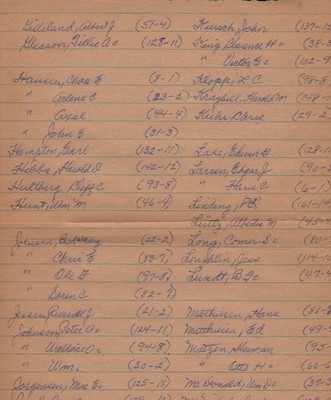 Gideland, Albert J (57-4) Kiersch, John (137-12
Gleason, Tillie A= (128-11) King, Clarence H= (38-3
" Victor E= (102-9
Hansen, Chas E (8-1) Klopp, L C (98-8
" Arlene E (23-2) Kraybill, Harold M (148-
" Axel (44-4) Kuhr, Chris (29-2
" John E (31-3)
Hampton, Earl (132-11) Lake, Edwin H (128-1
Hibbs, Harold D (142-12) Larsen, Edgar J (90-
Hultberg, Cliff C (93-8) " Hans C (6-1)
Hunt, Wm M (46-4) (161-14
Lutz, M (45-
Jensen, (22-2) Long, Comer L= (80-
" Chris E (83-7) Loughlin, Jess (114-10
" Ole G (97-8) Lundt, (47-4
" Soren C (82-7)
Jessen, Russell J (21-2) Matthiesen, Hans (81-8
Johnson, Peter A= (124-11) Matthiesen, Ed (49-
" Wallace A= (94-8) Matzen, Herman (95-
" Wm. (30-2) " Otto H= (66-6
Jorgensen, Max E= (125-12) McDonald, Wm D= (37-